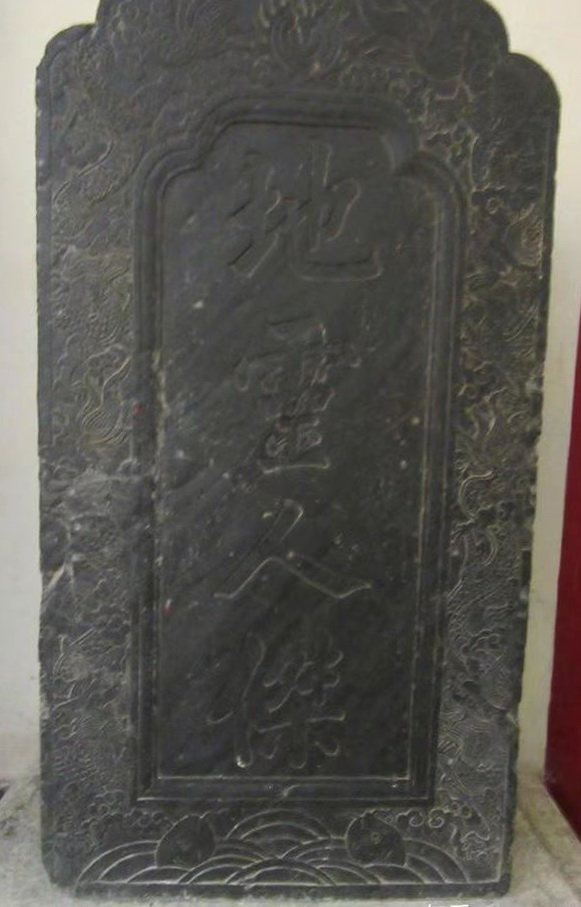 地靈人傑